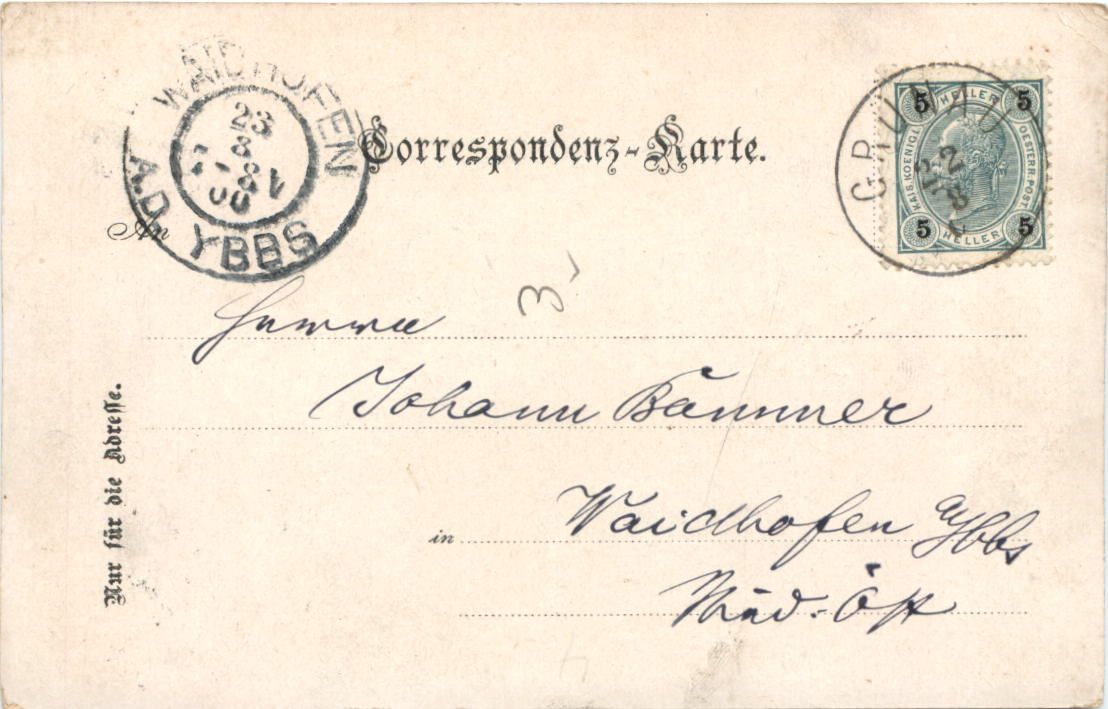 WAIDHOFEN
A.D. YBBS
23
8
00
Correspondenz-Karte.
GRÜNAU
5 HELLER 5
KAIS. KOENIGL. OESTERR. POST
5 HELLER 5
An
3
Johann Bammer
Nur für die Adresse.
in Waidhofen a/Ybbs
Nied. Öst